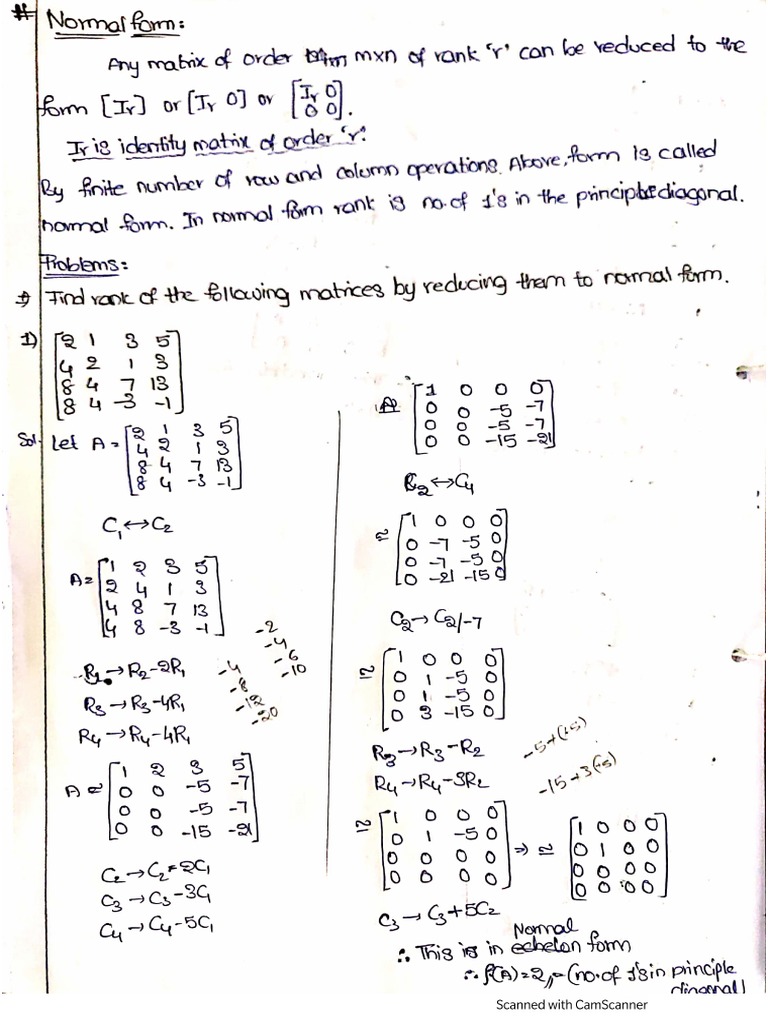 # Normal form:
Any matrix of order m×n of rank 'r' can be reduced to the
form [Ir] or [Ir 0] or [Ir 0
0 0].
Ir is identity matrix of order 'r'.
By finite number of row and column operations. Above, form is called
normal form. In normal form rank is no. of 1's in the principle diagonal.
Problems:
Find rank of the following matrices by reducing them to normal form.
1) [2 1 3 5
4 2 1 3
8 4 7 13
8 4 -3 -1]
Sol- Let A = [2 1 3 5
4 2 1 3
8 4 7 13
8 4 -3 -1]
C1↔C2
A = [1 2 3 5
2 4 1 3
4 8 7 13
4 8 -3 -1]
-2
-4
-6
-10
R2→R2-2R1
R3→R3-4R1
R4→R4-4R1
-4
-8
-12
-20
A ≃ [1 2 3 5
0 0 -5 -7
0 0 -5 -7
0 0 -15 -21]
C2→C2-2C1
C3→C3-3C1
C4→C4-5C1
[1 0 0 0
0 0 -5 -7
0 0 -5 -7
0 0 -15 -21]
C2↔C4
≃ [1 0 0 0
0 -7 -5 0
0 -7 -5 0
0 -21 -15 0]
C2→C2/-7
≃ [1 0 0 0
0 1 -5 0
0 1 -5 0
0 3 -15 0]
R3→R3-R2
-5+(+5)
R4→R4-3R2
-15+3(+5)
≃ [1 0 0 0
0 1 -5 0
0 0 0 0
0 0 0 0] ⇒ ≃ [1 0 0 0
0 1 0 0
0 0 0 0
0 0 0 0]
C3→C3+5C2
Normal
∴ This is in echelon form
∴ ρ(A)=2,, = (no. of 1's in principle
diagonal)
Scanned with CamScanner